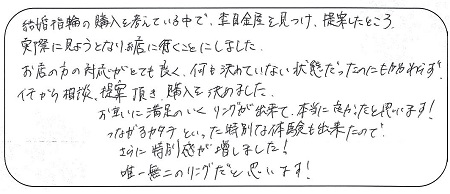 結婚指輪の購入を考えている中で、杢目金屋を見つけ、提案したところ、
実際に見ようとなりお店に行くことにしました。
お店の方の対応がとても良く、何も決めていない状態だったのにも関わらず、
イチから相談、提案頂き、購入を決めました。
お互いに満足のいくリングが出来て、本当に良かったと思います!
つながるカタチといった特別な体験も出来たので、
さらに特別感が増しました!
唯一無二のリングだと思います!